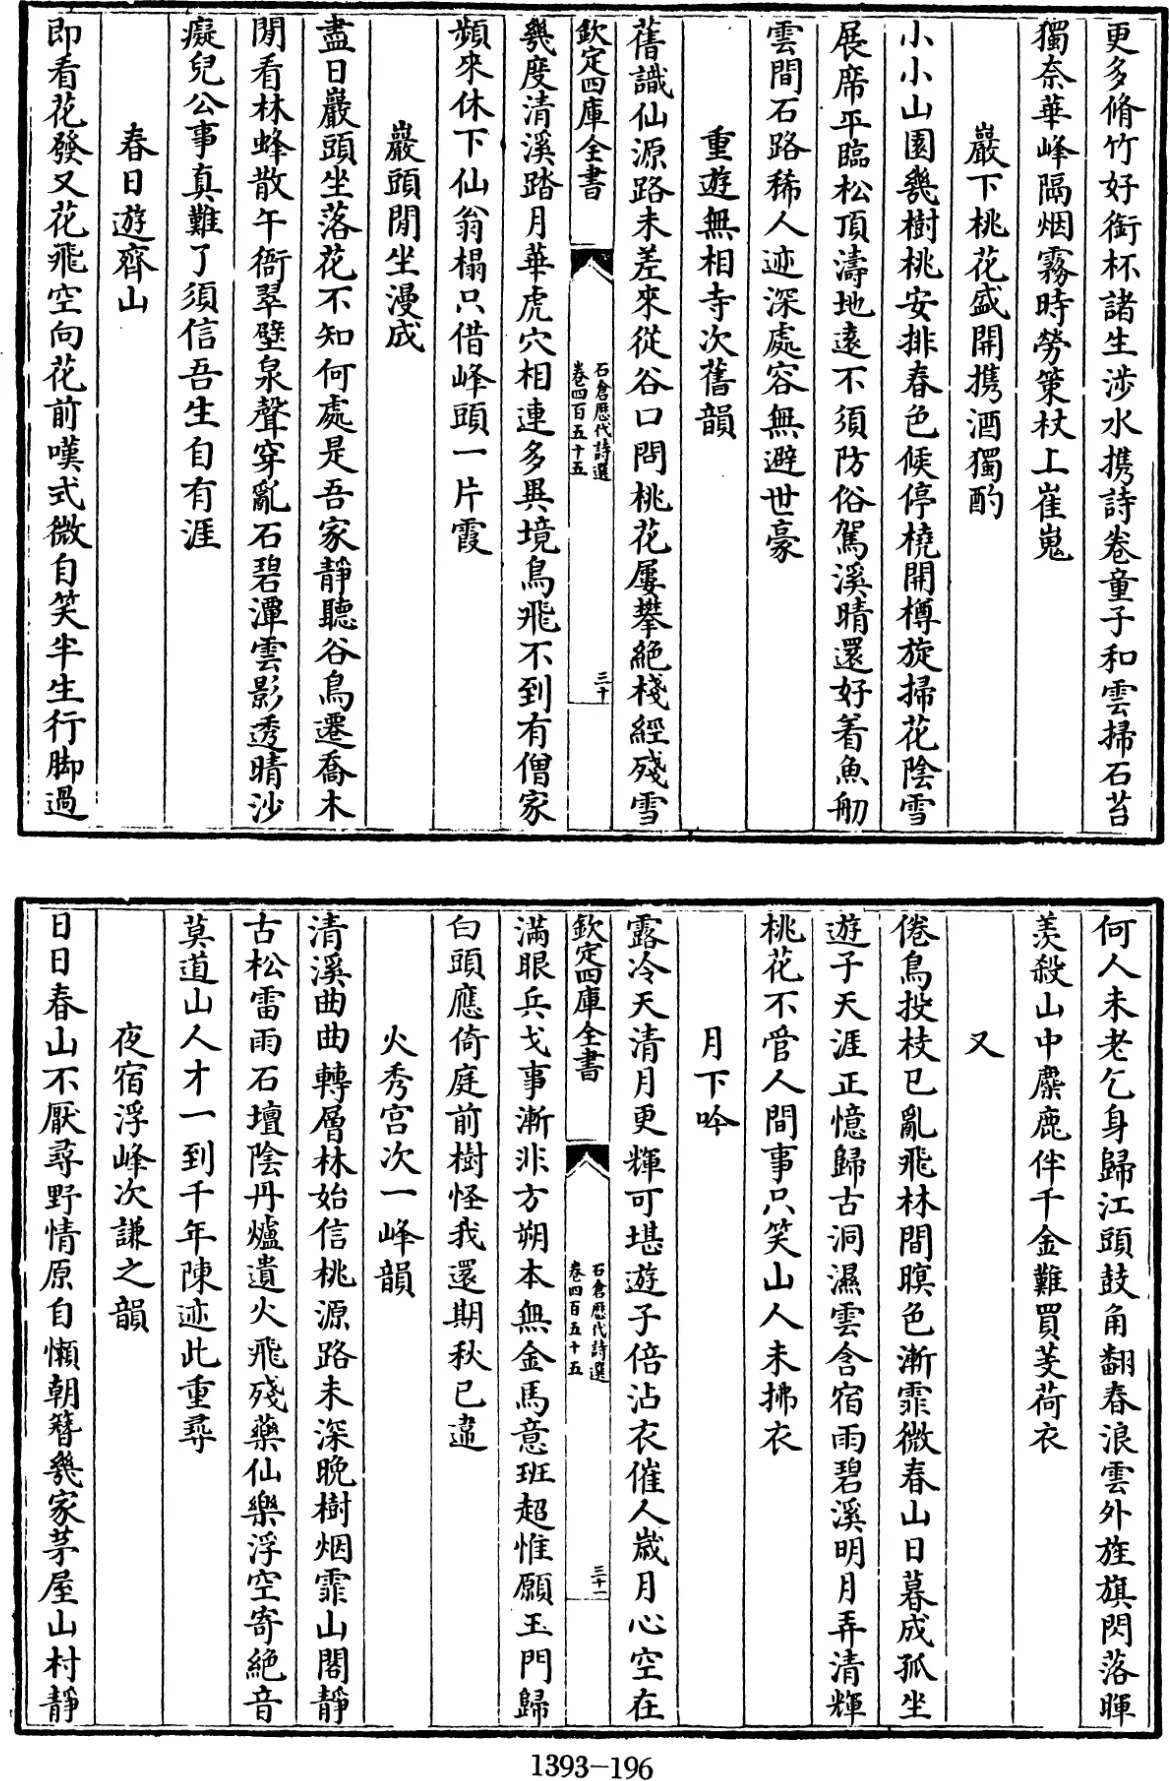 更多脩竹好銜杯諸生涉水携詩卷童子和雲掃石苔
獨奈華峰隔烟霧時勞策杖上崔嵬
巖下桃花盛開携酒獨酌
小小山園幾樹桃安排春色候停橈開樽旋掃花陰雪
展席平臨松頂濤地遠不須防俗駕溪晴還好着魚舠
雲間石路稀人迹深處容無避世豪
重遊無相寺次舊韻
舊識仙源路未差來從谷口問桃花屢攀絶棧經殘雪
欽定四庫全書
石倉歷代詩選
卷四百五十五
三十
幾度清溪踏月華虎穴相連多異境鳥飛不到有僧家
頻來休下仙翁榻只借峰頭一片霞
巖頭閒坐漫成
盡日巖頭坐落花不知何處是吾家靜聽谷鳥遷喬木
閒看林蜂散午衙翠壁泉聲穿亂石碧潭雲影透晴沙
癡兒公事真難了須信吾生自有涯
春日遊齊山
即看花發又花飛空向花前嘆式微自笑半生行脚過
何人未老乞身歸江頭鼓角翻春浪雲外旌旗閃落暉
羨殺山中麋鹿伴千金難買芰荷衣
又
倦鳥投枝已亂飛林間暝色漸霏微春山日暮成孤坐
遊子天涯正憶歸古洞濕雲含宿雨碧溪明月弄清輝
桃花不管人間事只笑山人未拂衣
月下吟
露冷天清月更輝可堪遊子倍沾衣催人歲月心空在
欽定四庫全書
石倉歷代詩選
卷四百五十五
三十一
滿眼兵戈事漸非方朔本無金馬意班超惟願玉門歸
白頭應倚庭前樹怪我還期秋已違
火秀宮次一峰韻
清溪曲曲轉層林始信桃源路未深晚樹烟霏山閣靜
古松雷雨石壇陰丹爐遺火飛殘藥仙樂浮空寄絶音
莫道山人才一到千年陳迹此重尋
夜宿浮峰次謙之韻
日日春山不厭尋野情原自懶朝簪幾家茅屋山村靜
1393-196